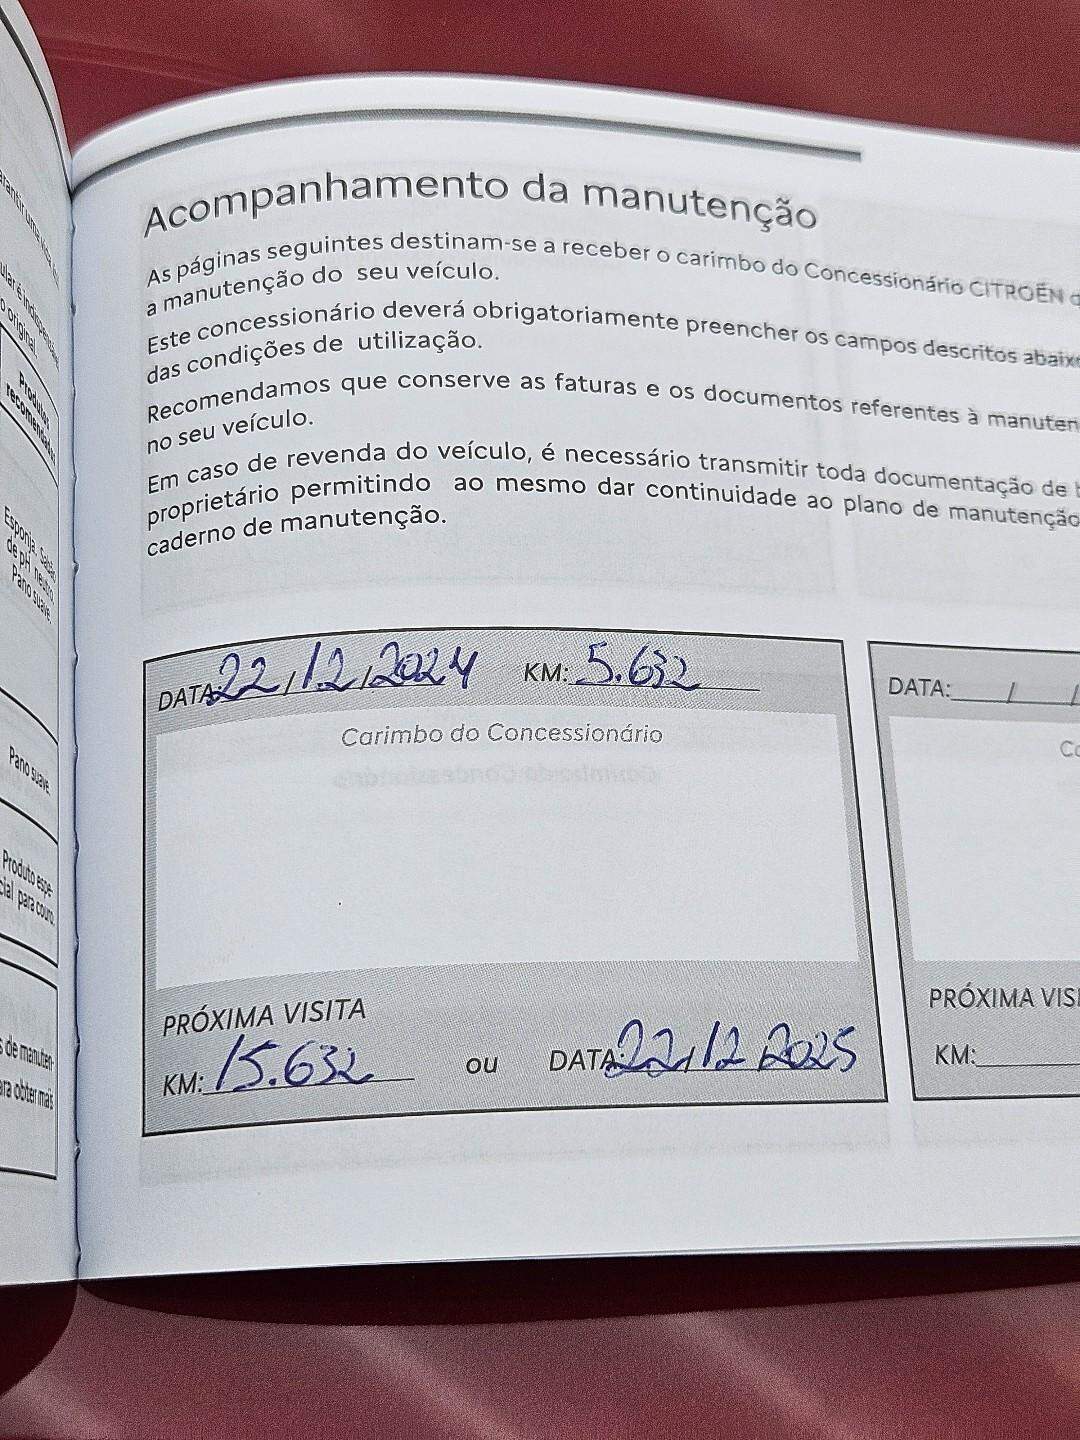 Acompanhamento da manutenção
As páginas seguintes destinam-se a receber o carimbo do Concessionário CITROËN
a manutenção do seu veículo.
Este concessionário deverá obrigatoriamente preencher os campos descritos
das condições de utilização.
Recomendamos que conserve as faturas e os documentos referentes à
no seu veículo.
Em caso de revenda do veículo, é necessário transmitir toda documentação de
proprietário permitindo ao mesmo dar continuidade ao plano de manutenção
caderno de manutenção.
DATA: 22/12/2024 KM: 5.632
Carimbo do Concessionário
PRÓXIMA VISITA
KM: 15.632 ou DATA: 22/12/2025
DATA: / /
PRÓXIMA
KM:
Produtos
recomendados
Esponja. Sabão
de pH neutro.
Pano suave.
Pano suave.
Produto espe-
cial para couro.